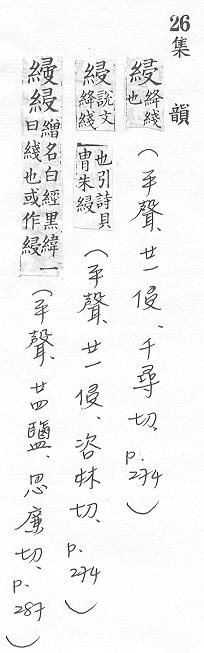 26 集韻
綅 絳綫也 (平聲、廿一侵、千尋切、p.274)
綅 說文絳綫也引詩貝冑朱綅 (平聲、廿一侵、咨林切、p.274)
綅 繒名白經黑緯一曰綫也或作綅 (平聲、廿四鹽、思廉切、p.287)